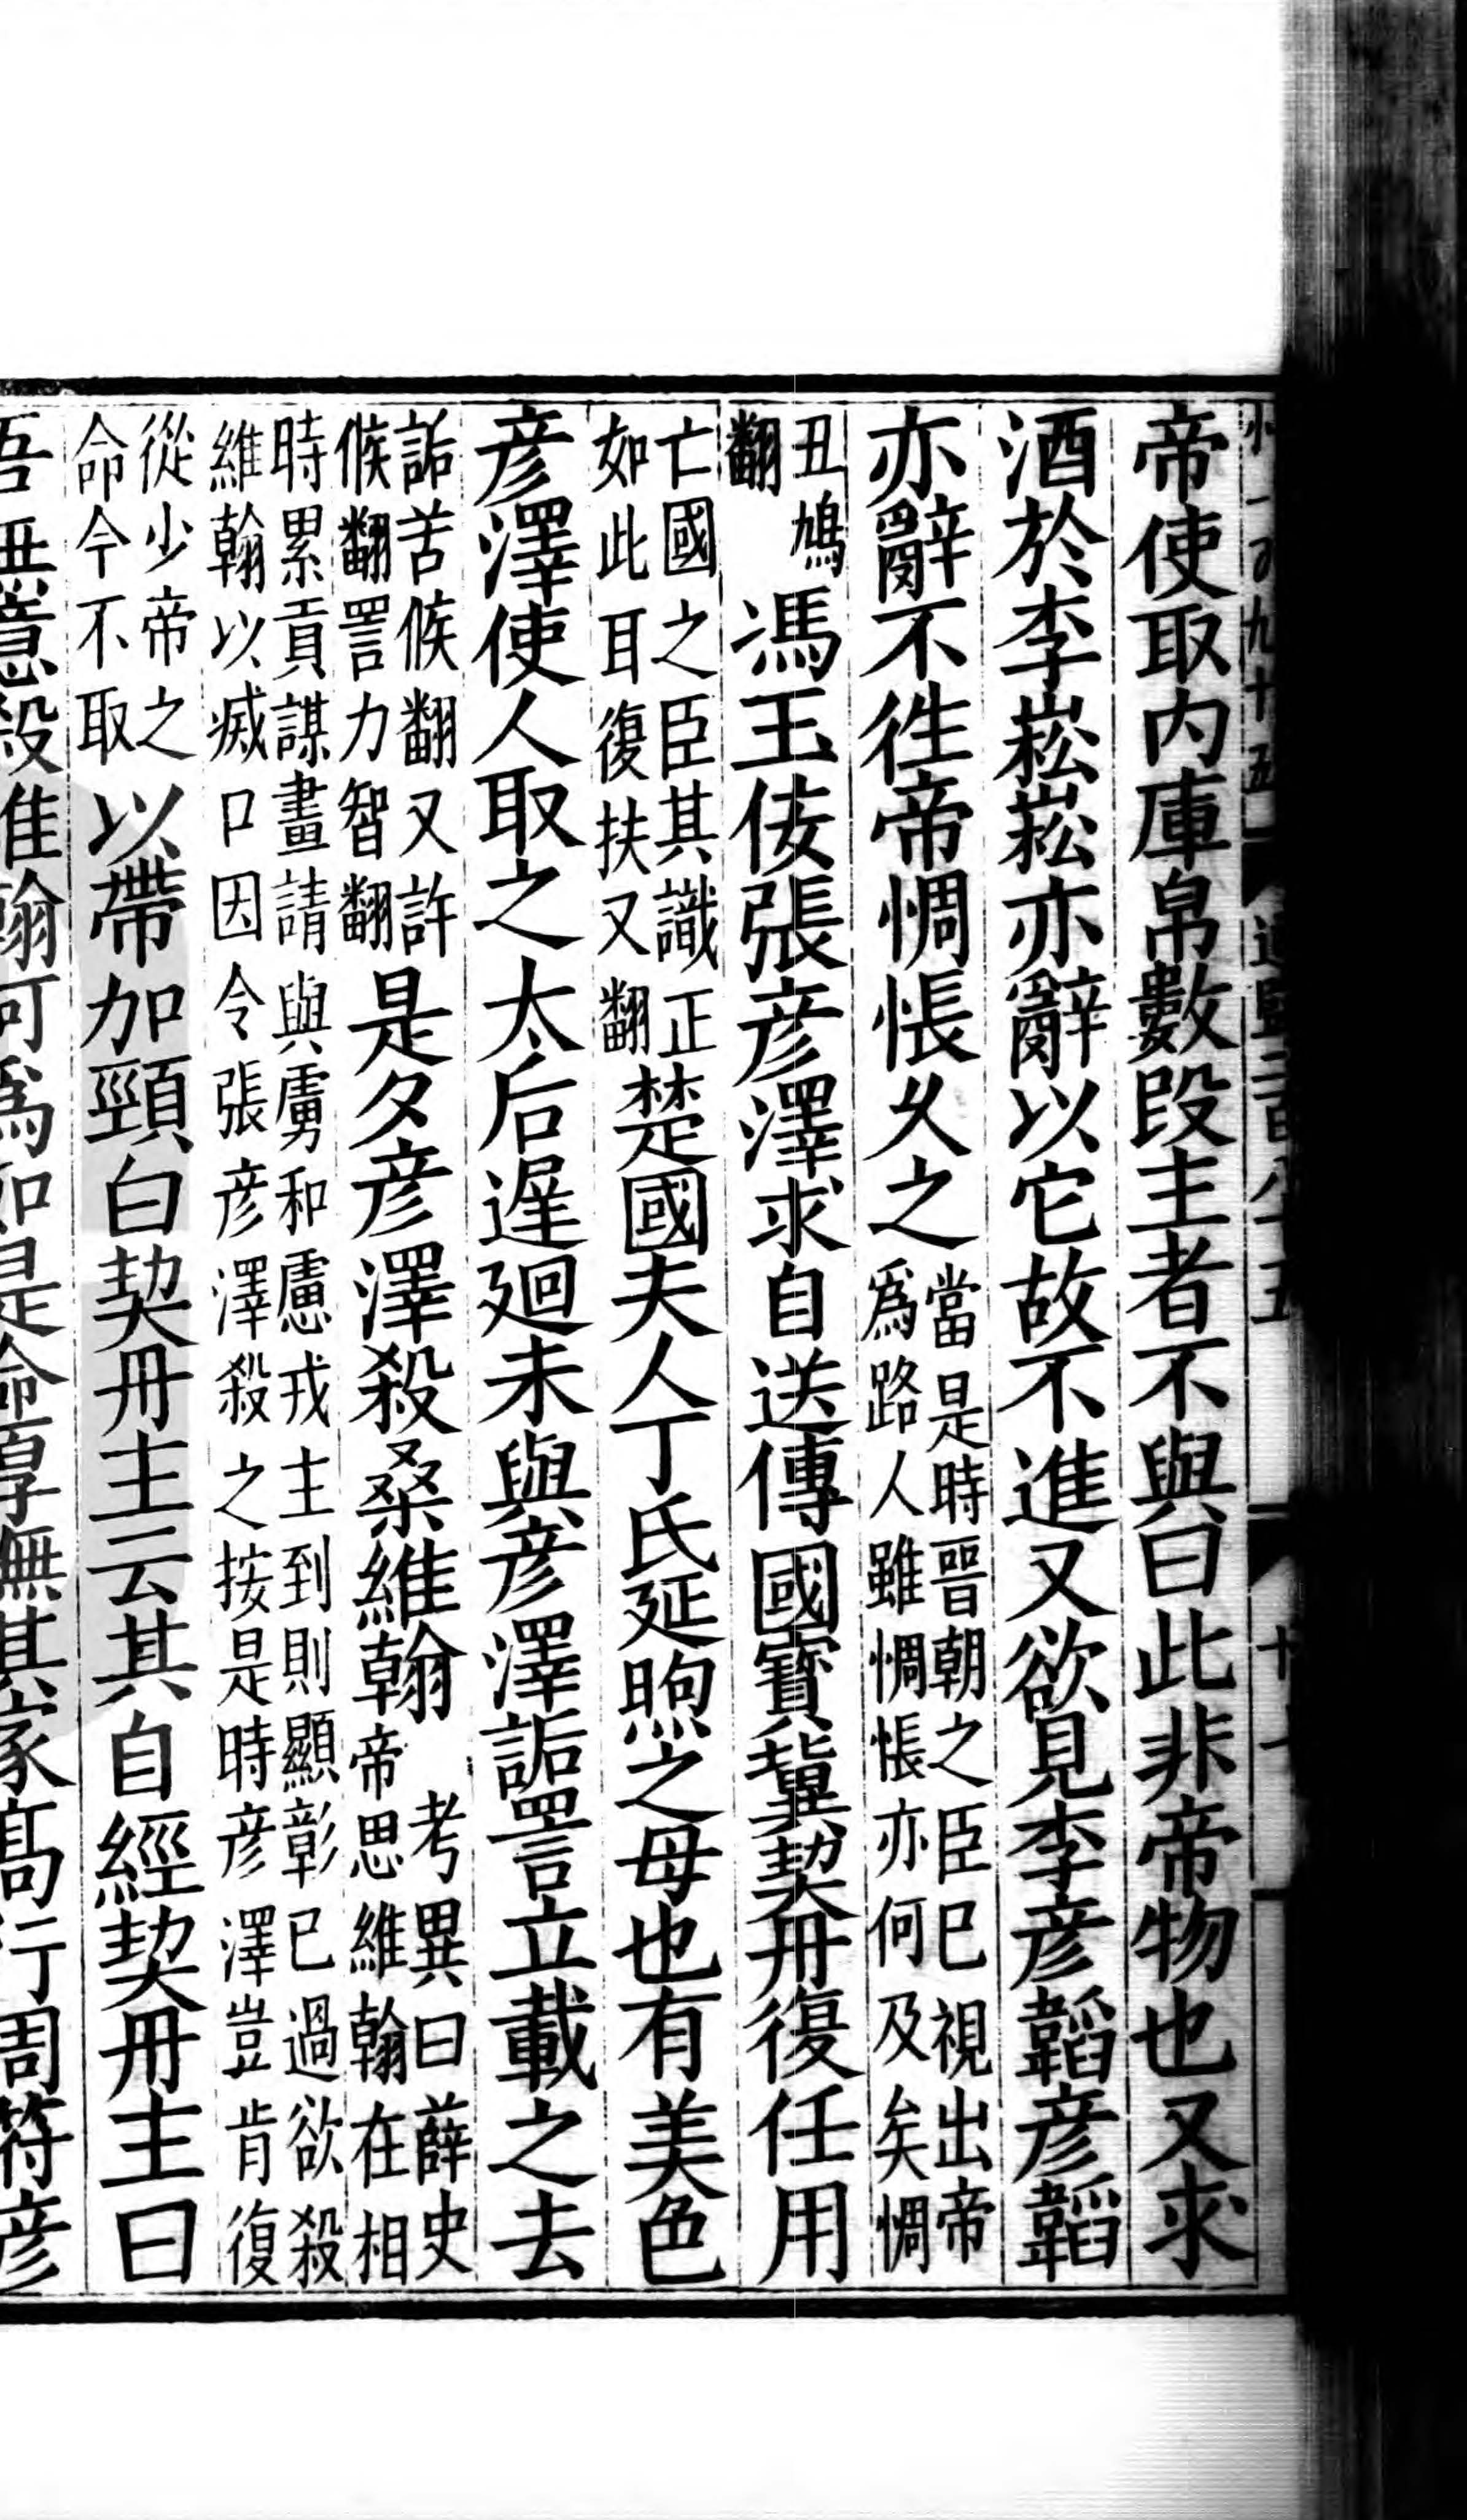 帝使取内庫帛數段主者不與曰此非帝物也又求
酒於李崧崧亦辭以它故不進又欲見李彦韜彦韜
亦辭不徃帝惆悵久之當是時晉朝之臣已視出帝爲路人雖惆悵亦何及矣惆
丑鳩翻馮玉佞張彦澤求自送傳國寶冀契丹復任用
亡國之臣其識正如此耳復扶又翻楚國夫人丁氏延煦之母也有美色
彦澤使人取之太后遲廻未與彦澤詬詈立載之去
詬苦候翻又許候翻詈力智翻是夕彦澤殺桑維翰考異曰薛史帝思維翰在相
時累貢謀畫請與虜和慮戎主到則顯彰已過欲殺維翰以滅口因令張彦澤殺之按是時彦澤豈肯復
從少帝之命今不取以帶加頸白契丹主云其自經契丹主曰
吾無意殺維翰何爲如是命厚撫其家高行周符彦